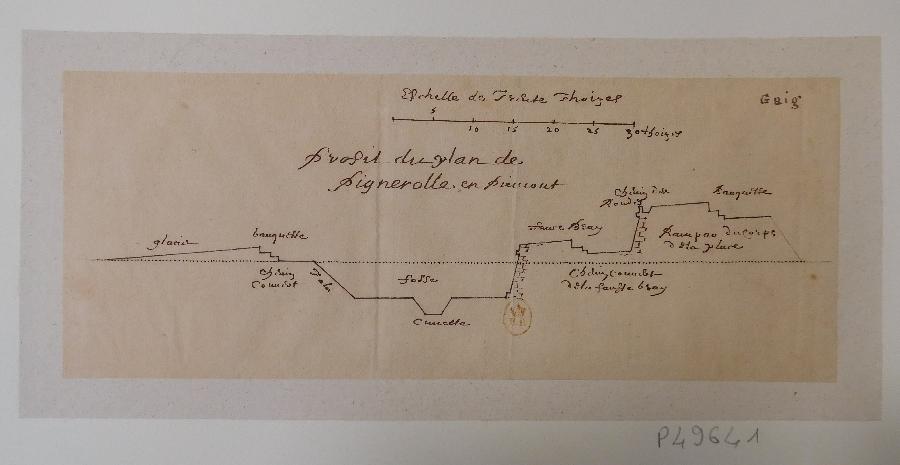 Eschelle de Trente Thoizes
Gaig
5
10 15 20 25 30 thoizes
Profil du plan de
Pignerolle en piemont
Chemin des
Rondes
banquette
glacis
banquette
fauce bray
Rampar du corps
de la place
Chemin
Couvert
Talu
fosse
Chemin couvert
de la fausse bray
Cunette
P49641